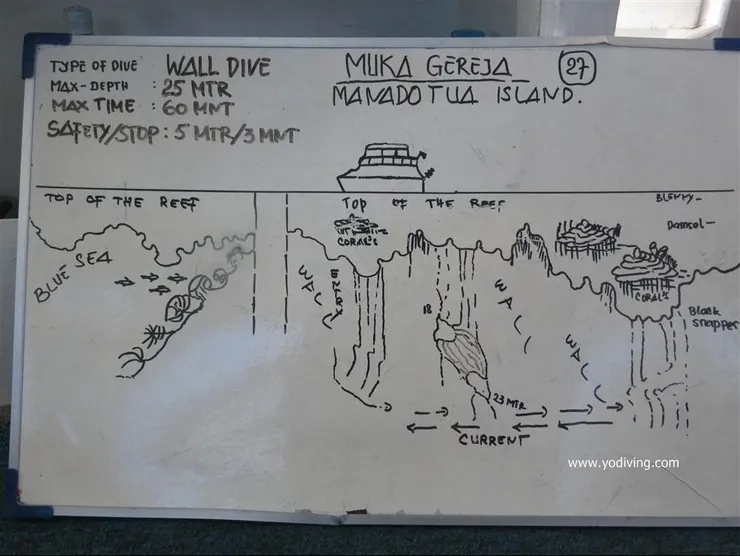 TYPE OF DIVE : WALL DIVE
MAX-DEPTH : 25 MTR
MAX TIME : 60 MNT
SAFETY/STOP : 5 MTR/3 MNT
MUKA GEREJA 27
MANADO TUA ISLAND.
TOP OF THE REEF
TOP OF THE REEF
BLENNY-
Damsel-
CORAL'S
BLUE SEA
WALL
ENTRY
WALL
WALL
CORAL'S
Black
snapper
18
23 MTR
CURRENT
www.yodiving.com